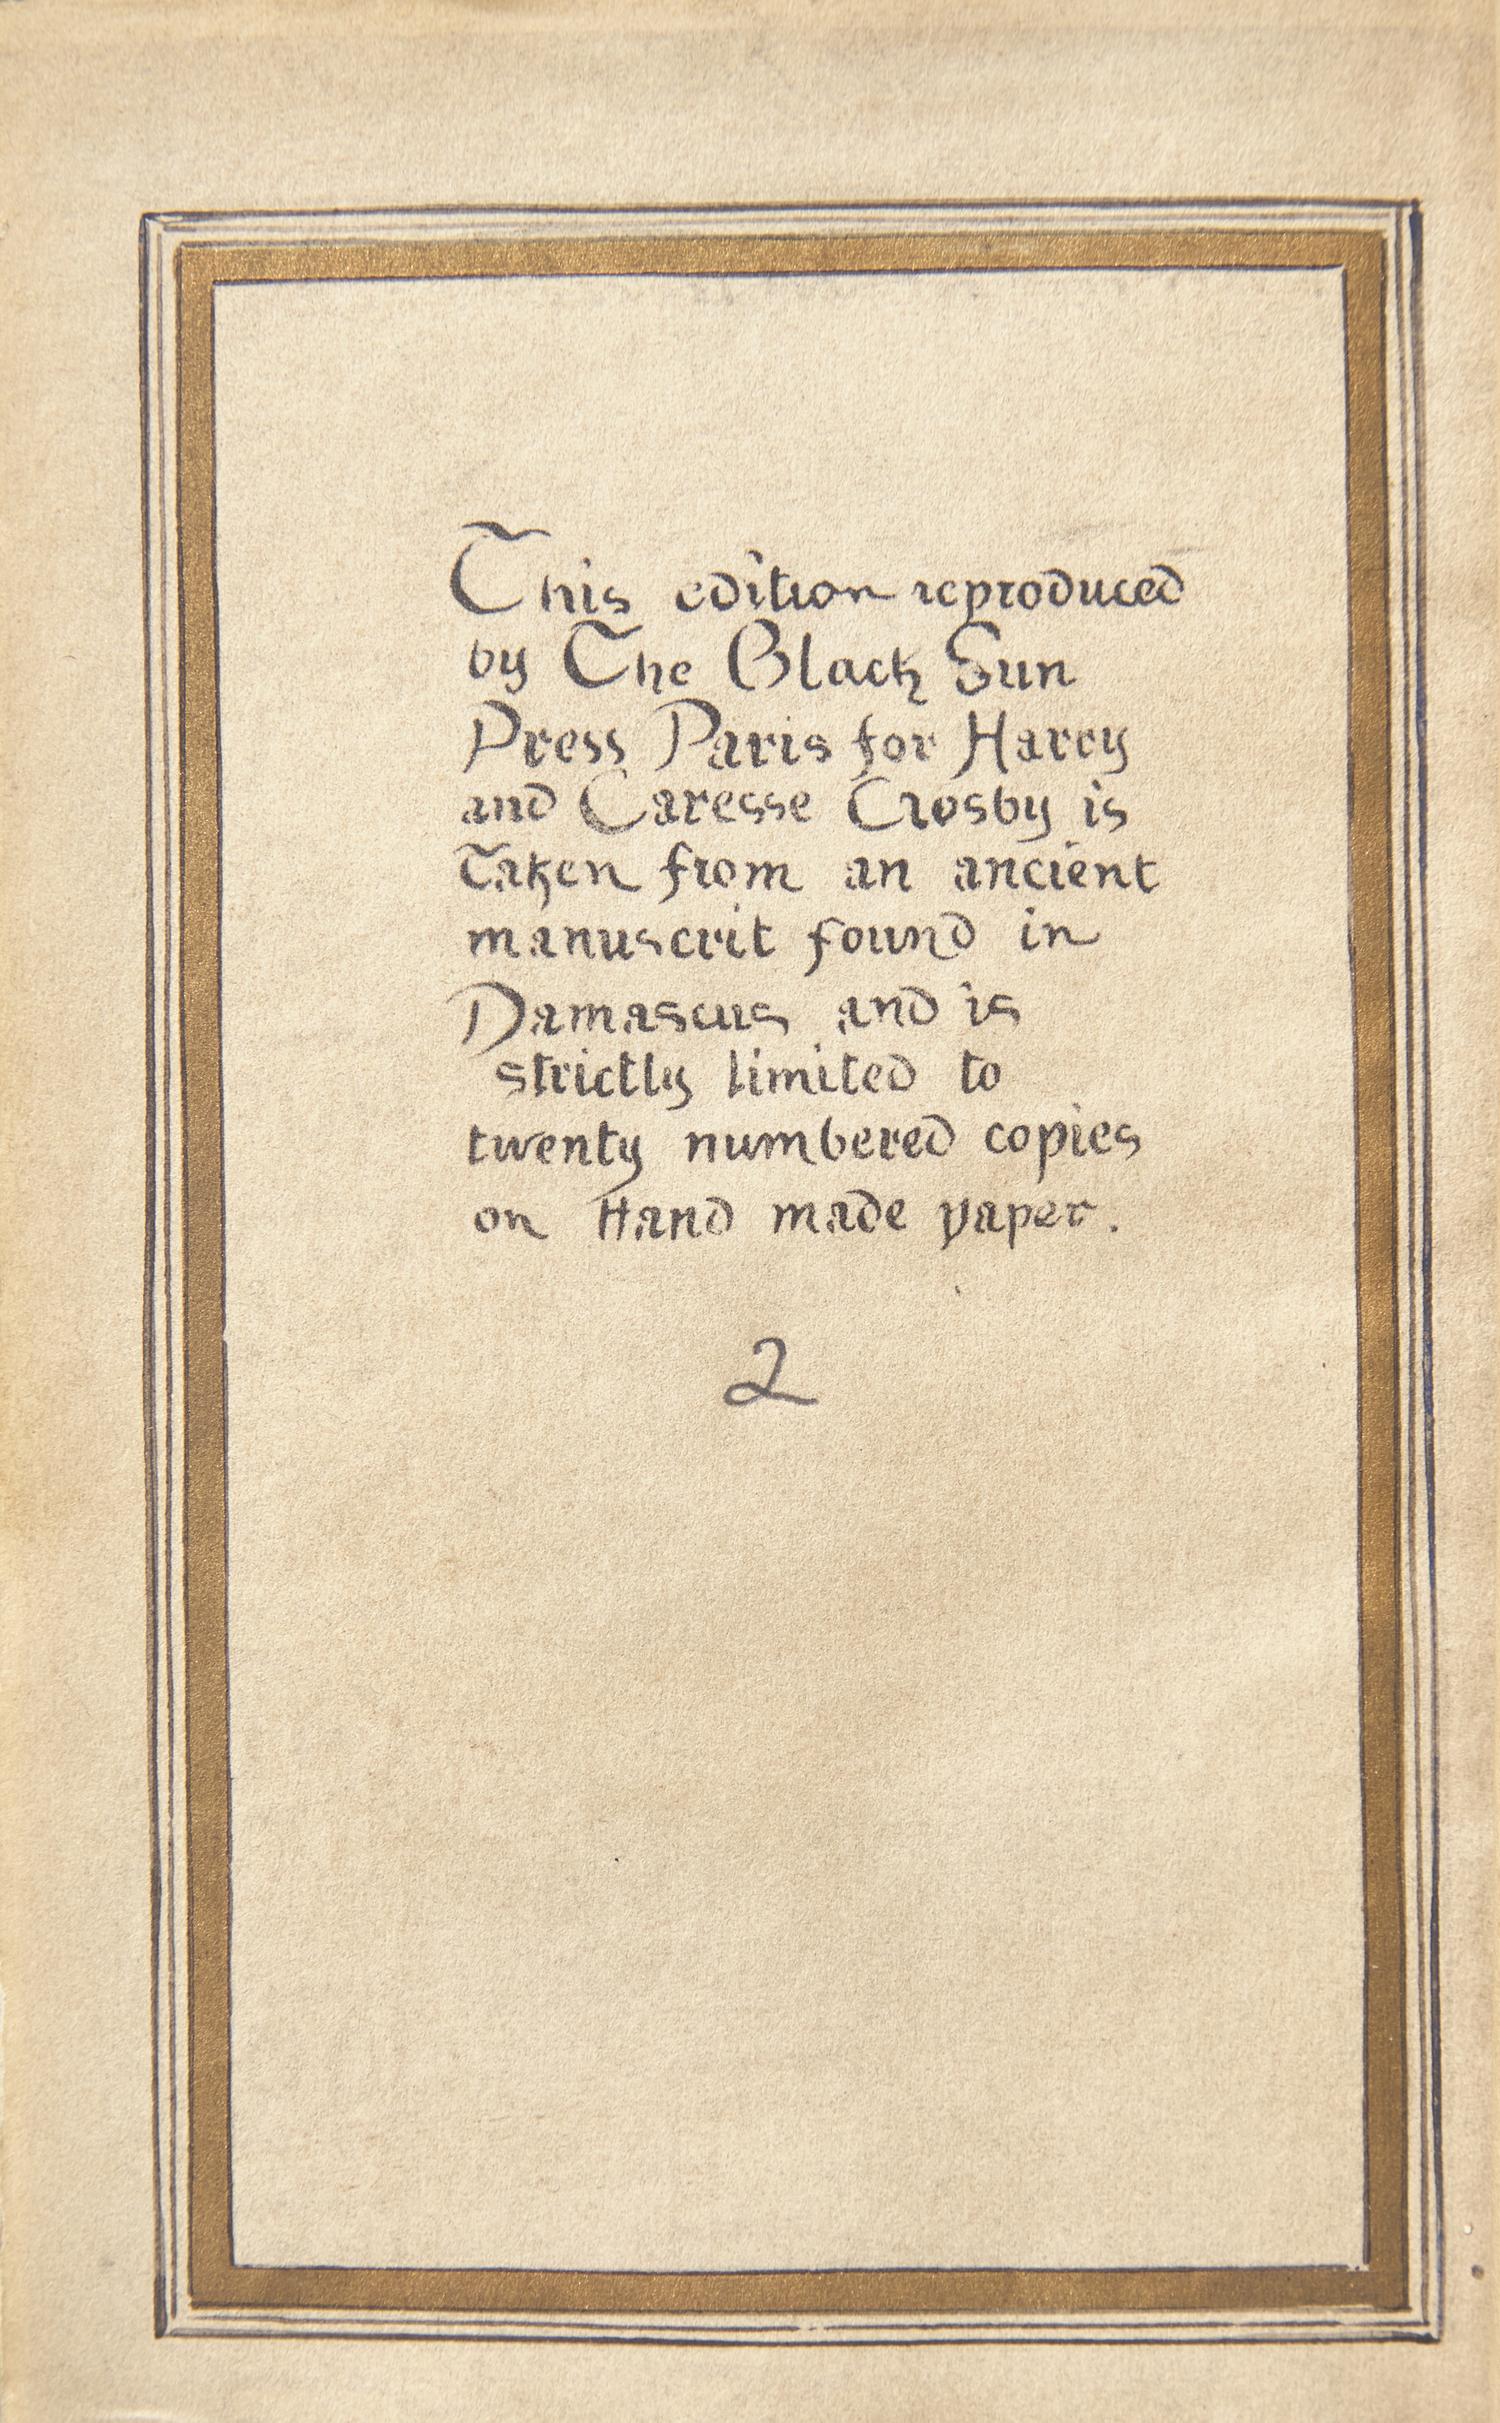 This edition reproduced
by The Black Sun
Press Paris for Harry
and Caresse Crosby is
Taken from an ancient
manuscrit found in
Damascus and is
strictly limited to
twenty numbered copies
on Hand made paper.
2